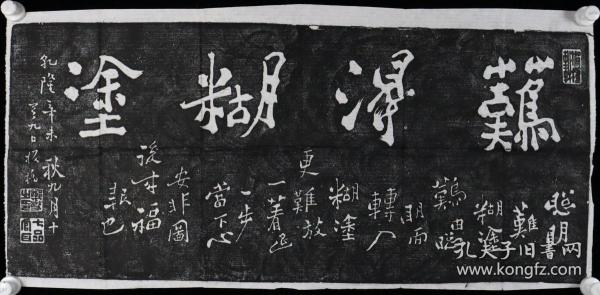 難得糊塗
聰明
難
糊塗
難由聰
明而
轉入
糊塗
更難放
一著退
一步
當下心
安非圖
後來福
報也
乾隆辛未秋九月十
有九日板橋
孔夫子旧書网
www.kongfz.com